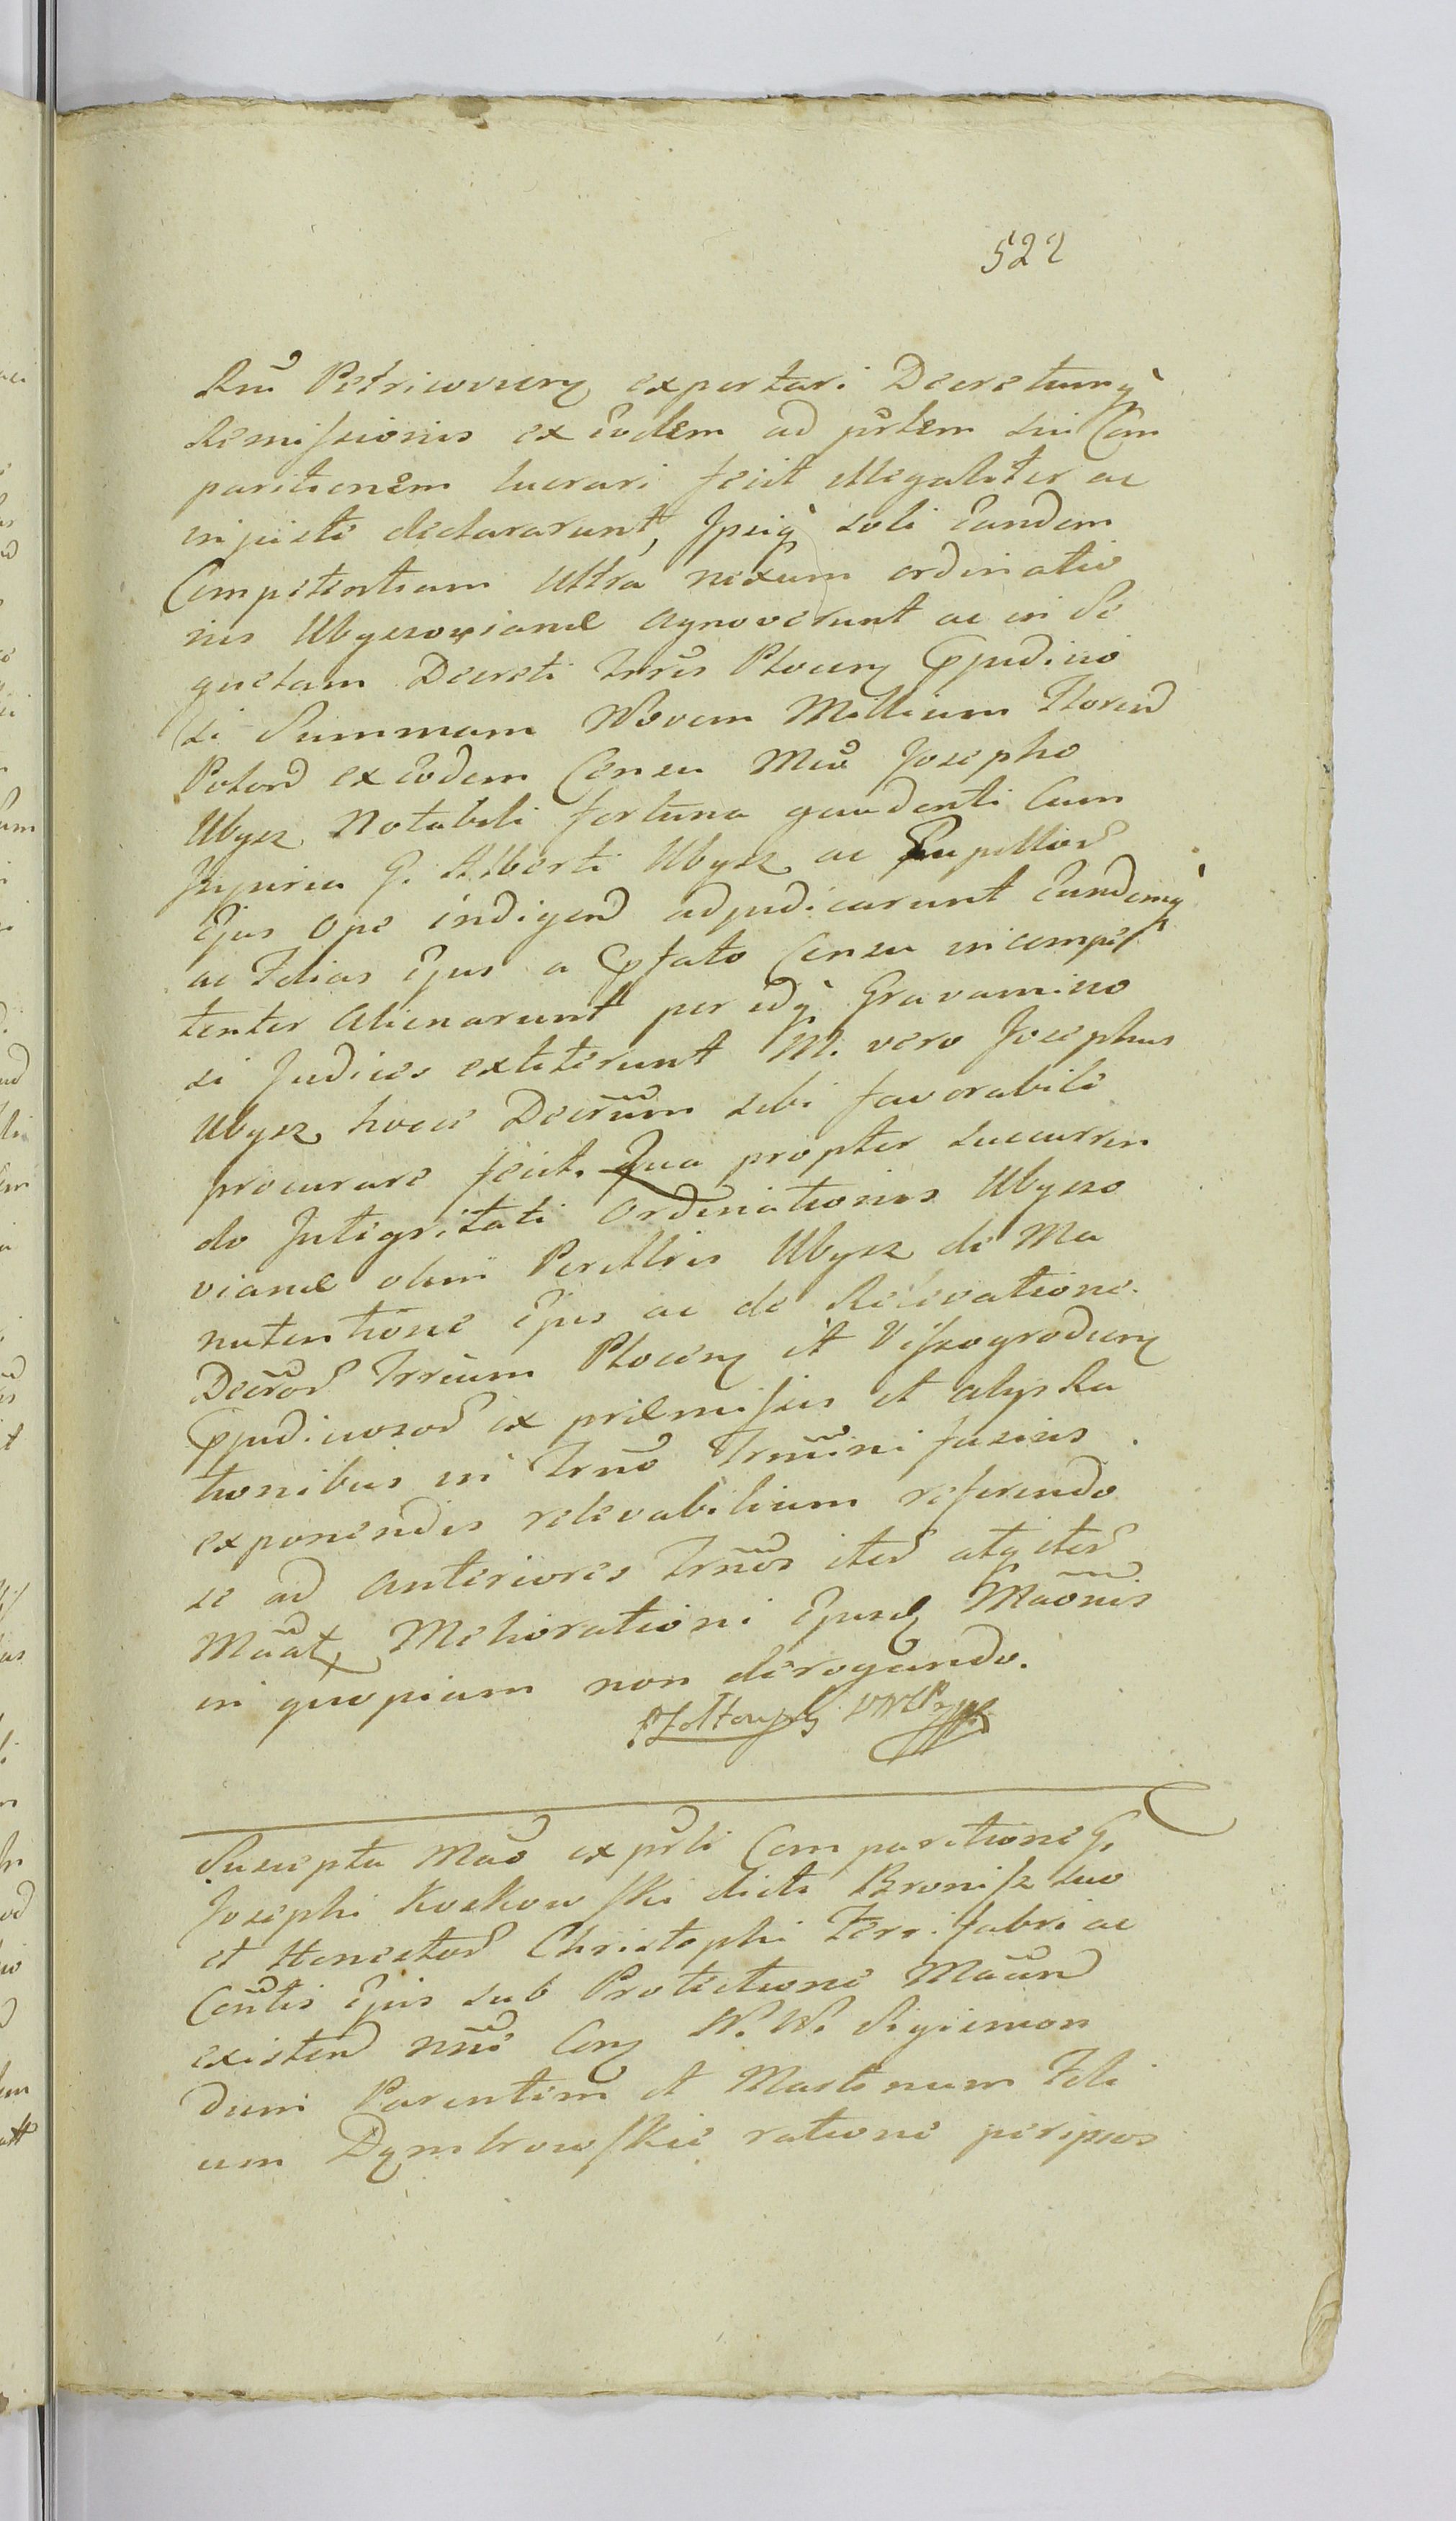 522
Rm̃ Petricovien exportari Decretumq̀
Remissionis ex Eodem ad prṡtem sui Com
paritionem lucrari fecit illegaliter ac
injuste declararunt, Ipsiq̀ soli Eandem
Competentiam Ultra nexum ordinatio
nis Ubyszovianæ agnoverunt ac in Se
quelam Decreti Trris Plocen Ppudicio
si Summam Novem Millium Floren
Polon ex Eodem Censu Mco Josepho
Ubysz Notabili fortuna gaudenti Cum
Injuria G. Alberti Ubysz ac Pupillor
Ejus Ope indigen adjudicarunt Eundemq̀
ac Filios Ejus a Pfato Censu incompe
tenter Alienarunt per idq̀ Gravamino
si Judices extiterunt M. vero Josephus
Ubysz hocce Decrum sibi favorabile
procurare fecit. Qua propter succurren
do Integritati Ordinationis Ubyszo
vianæ olim Perillris Ubysz de Ma
nutentione Ejus ac de Relevatione
Decror Trrium Plocen et Vissogroden
Ppudiciosor ex præmissis et alijs Ra
tionibus in Trno Termini fusius
exponendis relevabilium referendo
se ad Anteriores Trnos iter atq iter
Maat, Meliorationi Ejusd Maonis
in quopiam non derogando.
Suscepta Mao ex prli Comparitione G.
Josephi Koskowski dicti Bronisz suo
et Honestor Christophi Ferri fabri ac
Contis Ejus sub Protectione Maan
existen nne Con N. N. Sigismon
dum Parentem et Martinum Fili
um Dymbrowskie ratione peripsos